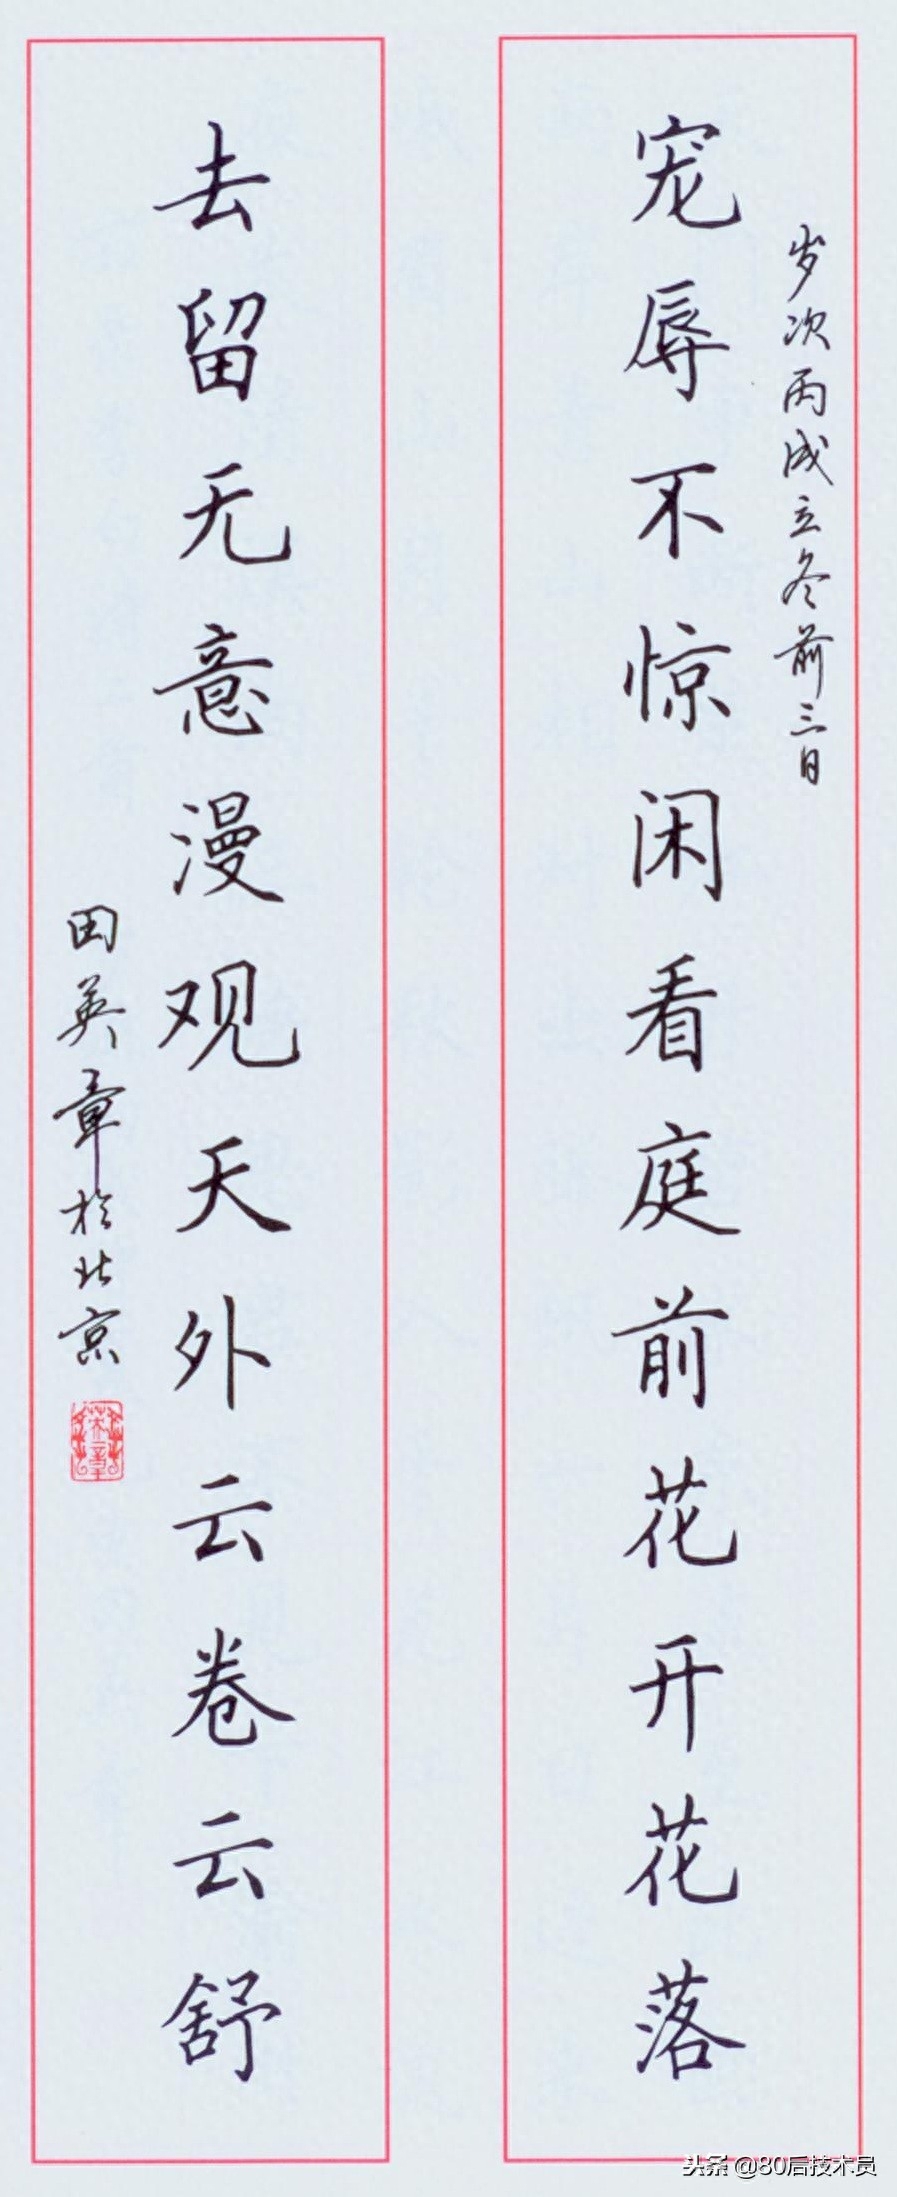 岁次丙戌立冬前三日
宠辱不惊闲看庭前花开花落
去留无意漫观天外云卷云舒
田英章于北京
头条 @80后技术员